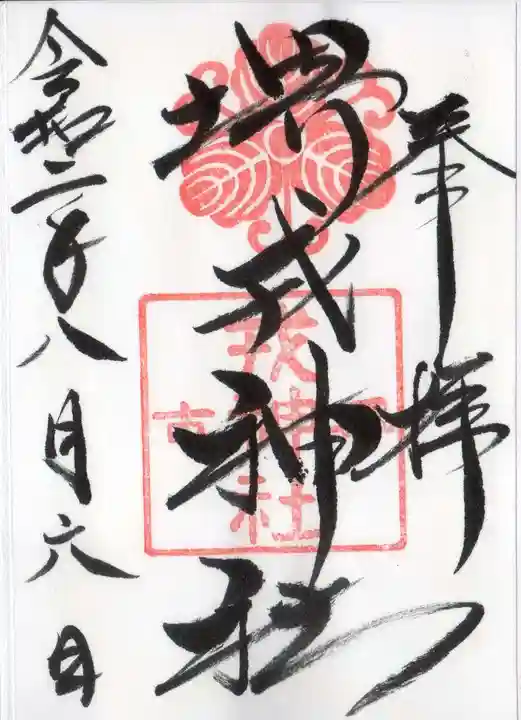 奉拝
堺戎神社
戎神社
令和二年八月六日